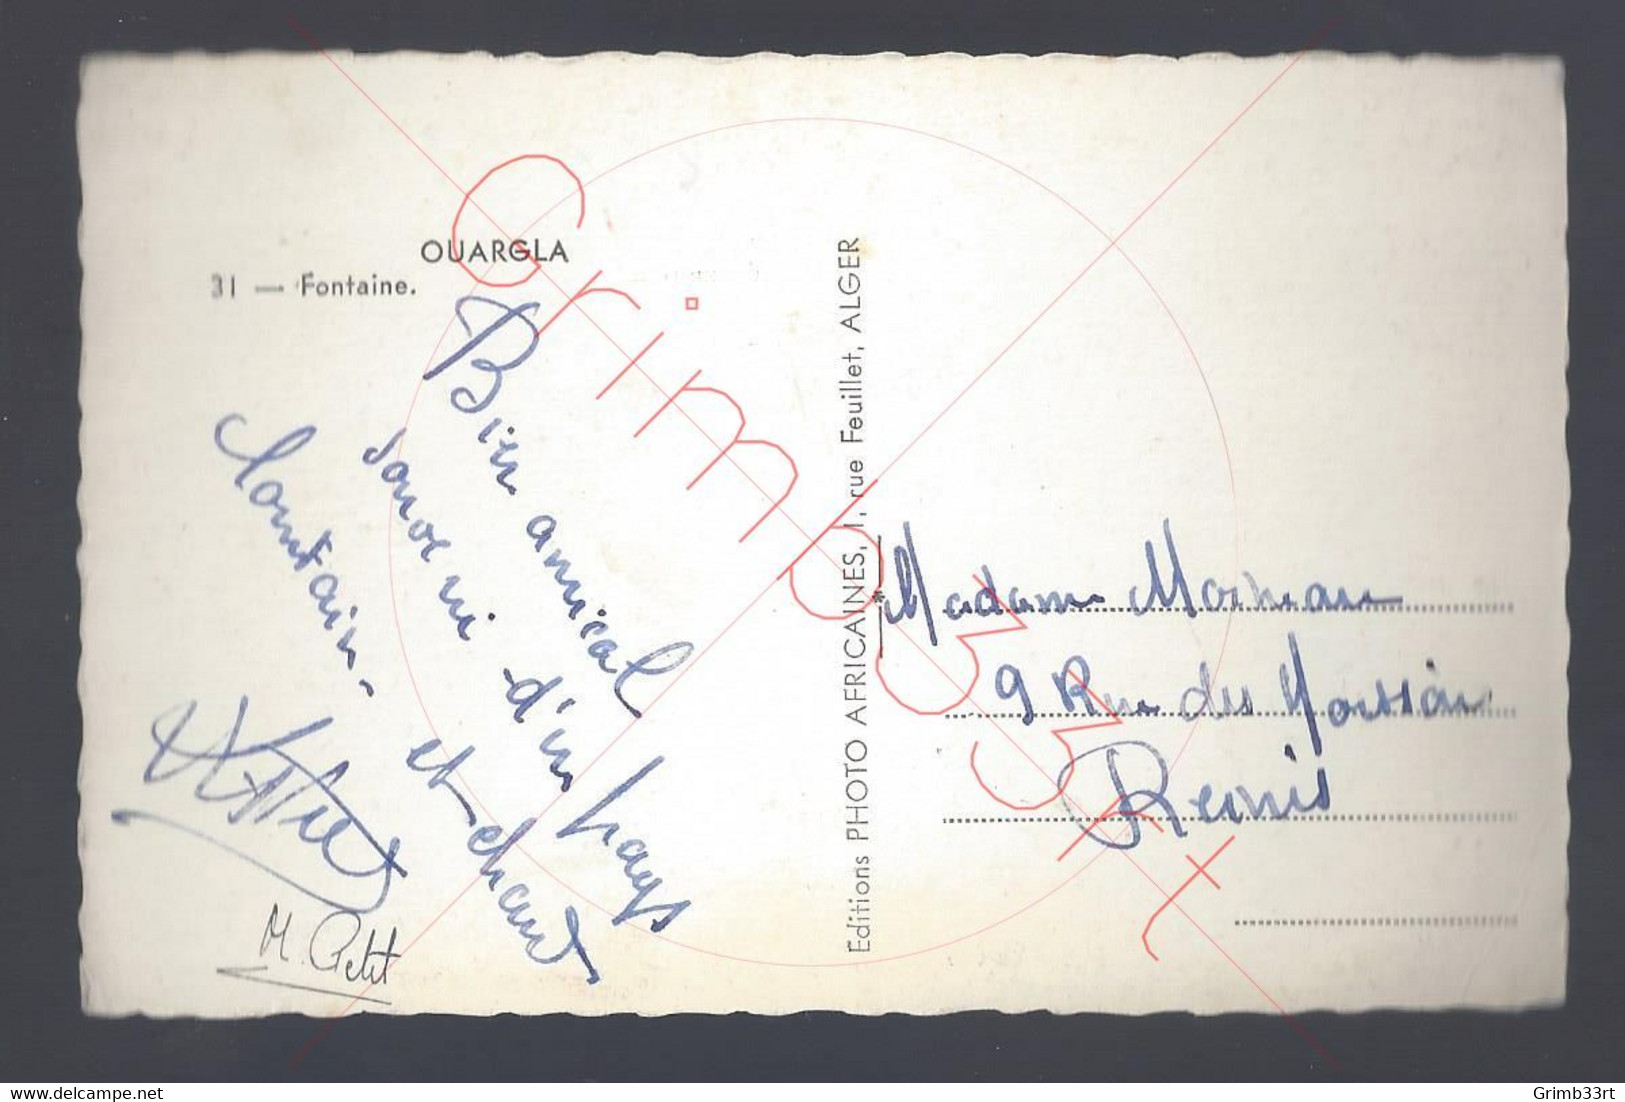 OUARGLA
31 — Fontaine.
Bien amical
souvenir d'un pays
lointain et chaud
M. Petit
Editions PHOTO AFRICAINES, 1, rue Feuillet, ALGER
Madame
9 Rue des
Reims
Grimb33rt
delcampe.net
Grimb33rt